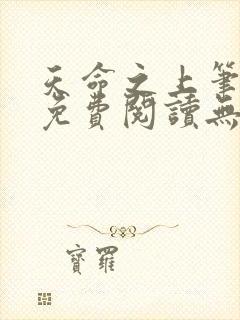 天命之上筆
免費閱讀無
寶羅